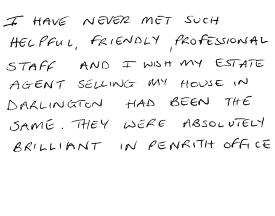 I HAVE NEVER MET SUCH
HELPFUL, FRIENDLY, PROFESSIONAL
STAFF AND I WISH MY ESTATE
AGENT SELLING MY HOUSE IN
DARLINGTON HAD BEEN THE
SAME. THEY WERE ABSOLUTELY
BRILLIANT IN PENRITH OFFICE